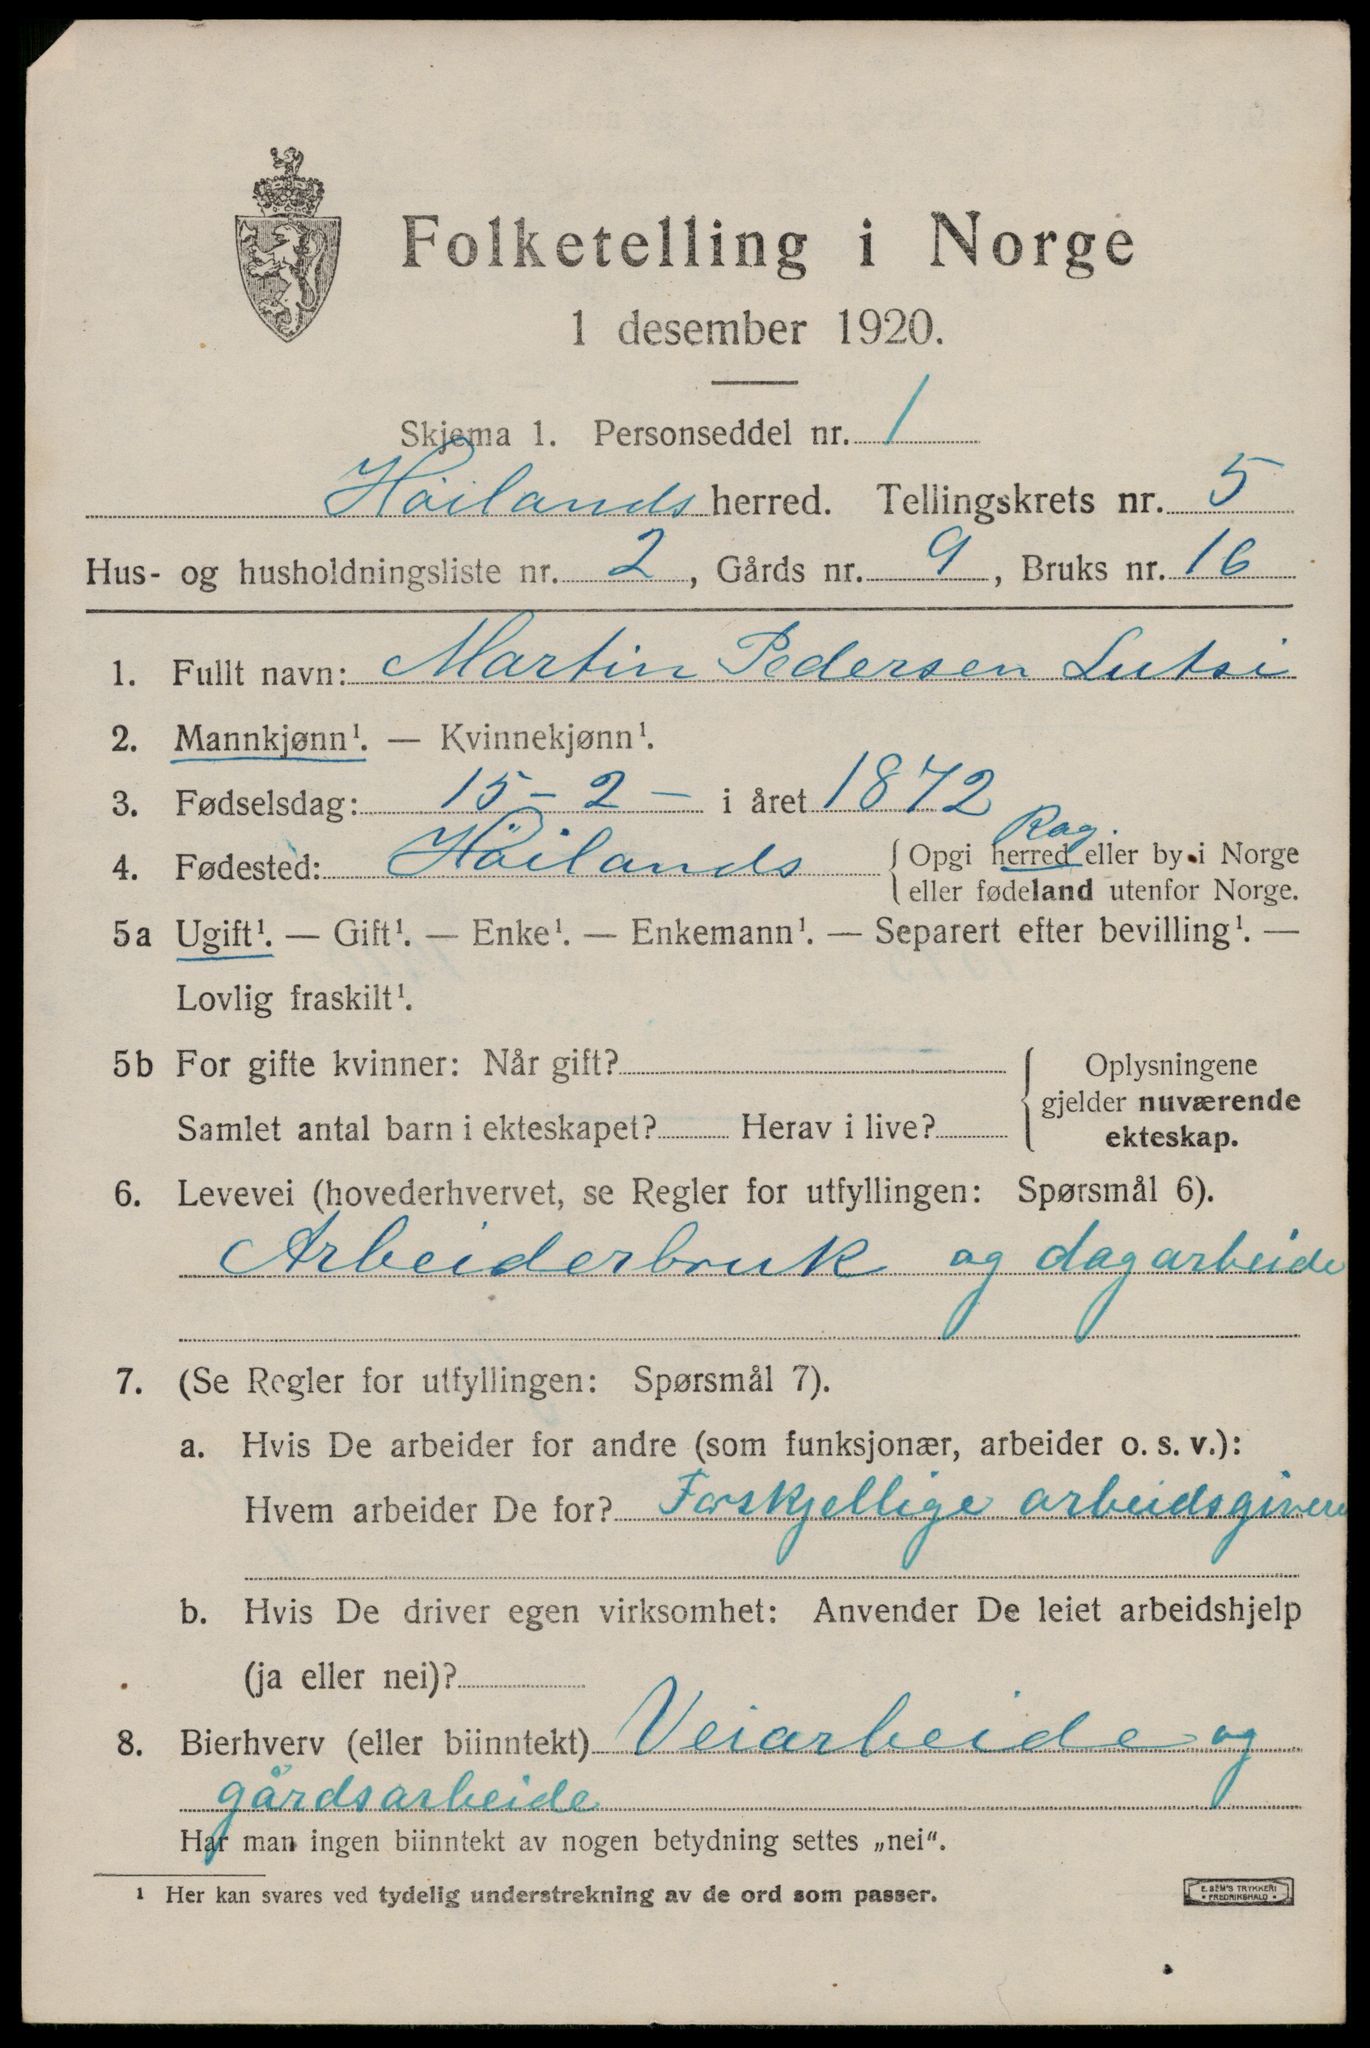 Folketelling i Norge
1 desember 1920.
Skjema 1. Personseddel nr. 1
Höilands herred. Tellingskrets nr. 5
Hus- og husholdningsliste nr. 2, Gårds nr. 9, Bruks nr. 16
1. Fullt navn: Martin Pedersen Lutsi
2. Mannkjønn¹. — Kvinnekjønn¹.
3. Fødselsdag: 15 - 2 - i året 1872
Rog.
4. Fødested: Höilands { Opgi herred eller by i Norge
eller fødeland utenfor Norge.
5a Ugift¹. — Gift¹. — Enke¹. — Enkemann¹. — Separert efter bevilling¹. —
Lovlig fraskilt¹.
5b For gifte kvinner: Når gift? { Oplysningene
gjelder nuværende
Samlet antal barn i ekteskapet? Herav i live? ekteskap.
6. Levevei (hovederhvervet, se Regler for utfyllingen: Spørsmål 6).
Arbeiderbruk og dagarbeide
7. (Se Regler for utfyllingen: Spørsmål 7).
a. Hvis De arbeider for andre (som funksjonær, arbeider o. s. v.):
Hvem arbeider De for? Forskjellige arbeidsgivere
b. Hvis De driver egen virksomhet: Anvender De leiet arbeidshjelp
(ja eller nei)?
8. Bierhverv (eller biinntekt) Veiarbeide og
gårdsarbeide
Har man ingen biinntekt av nogen betydning settes „nei“.
¹ Her kan svares ved tydelig understrekning av de ord som passer.
E. SEM'S TRYKKERI
• FREDRIKSHALD •